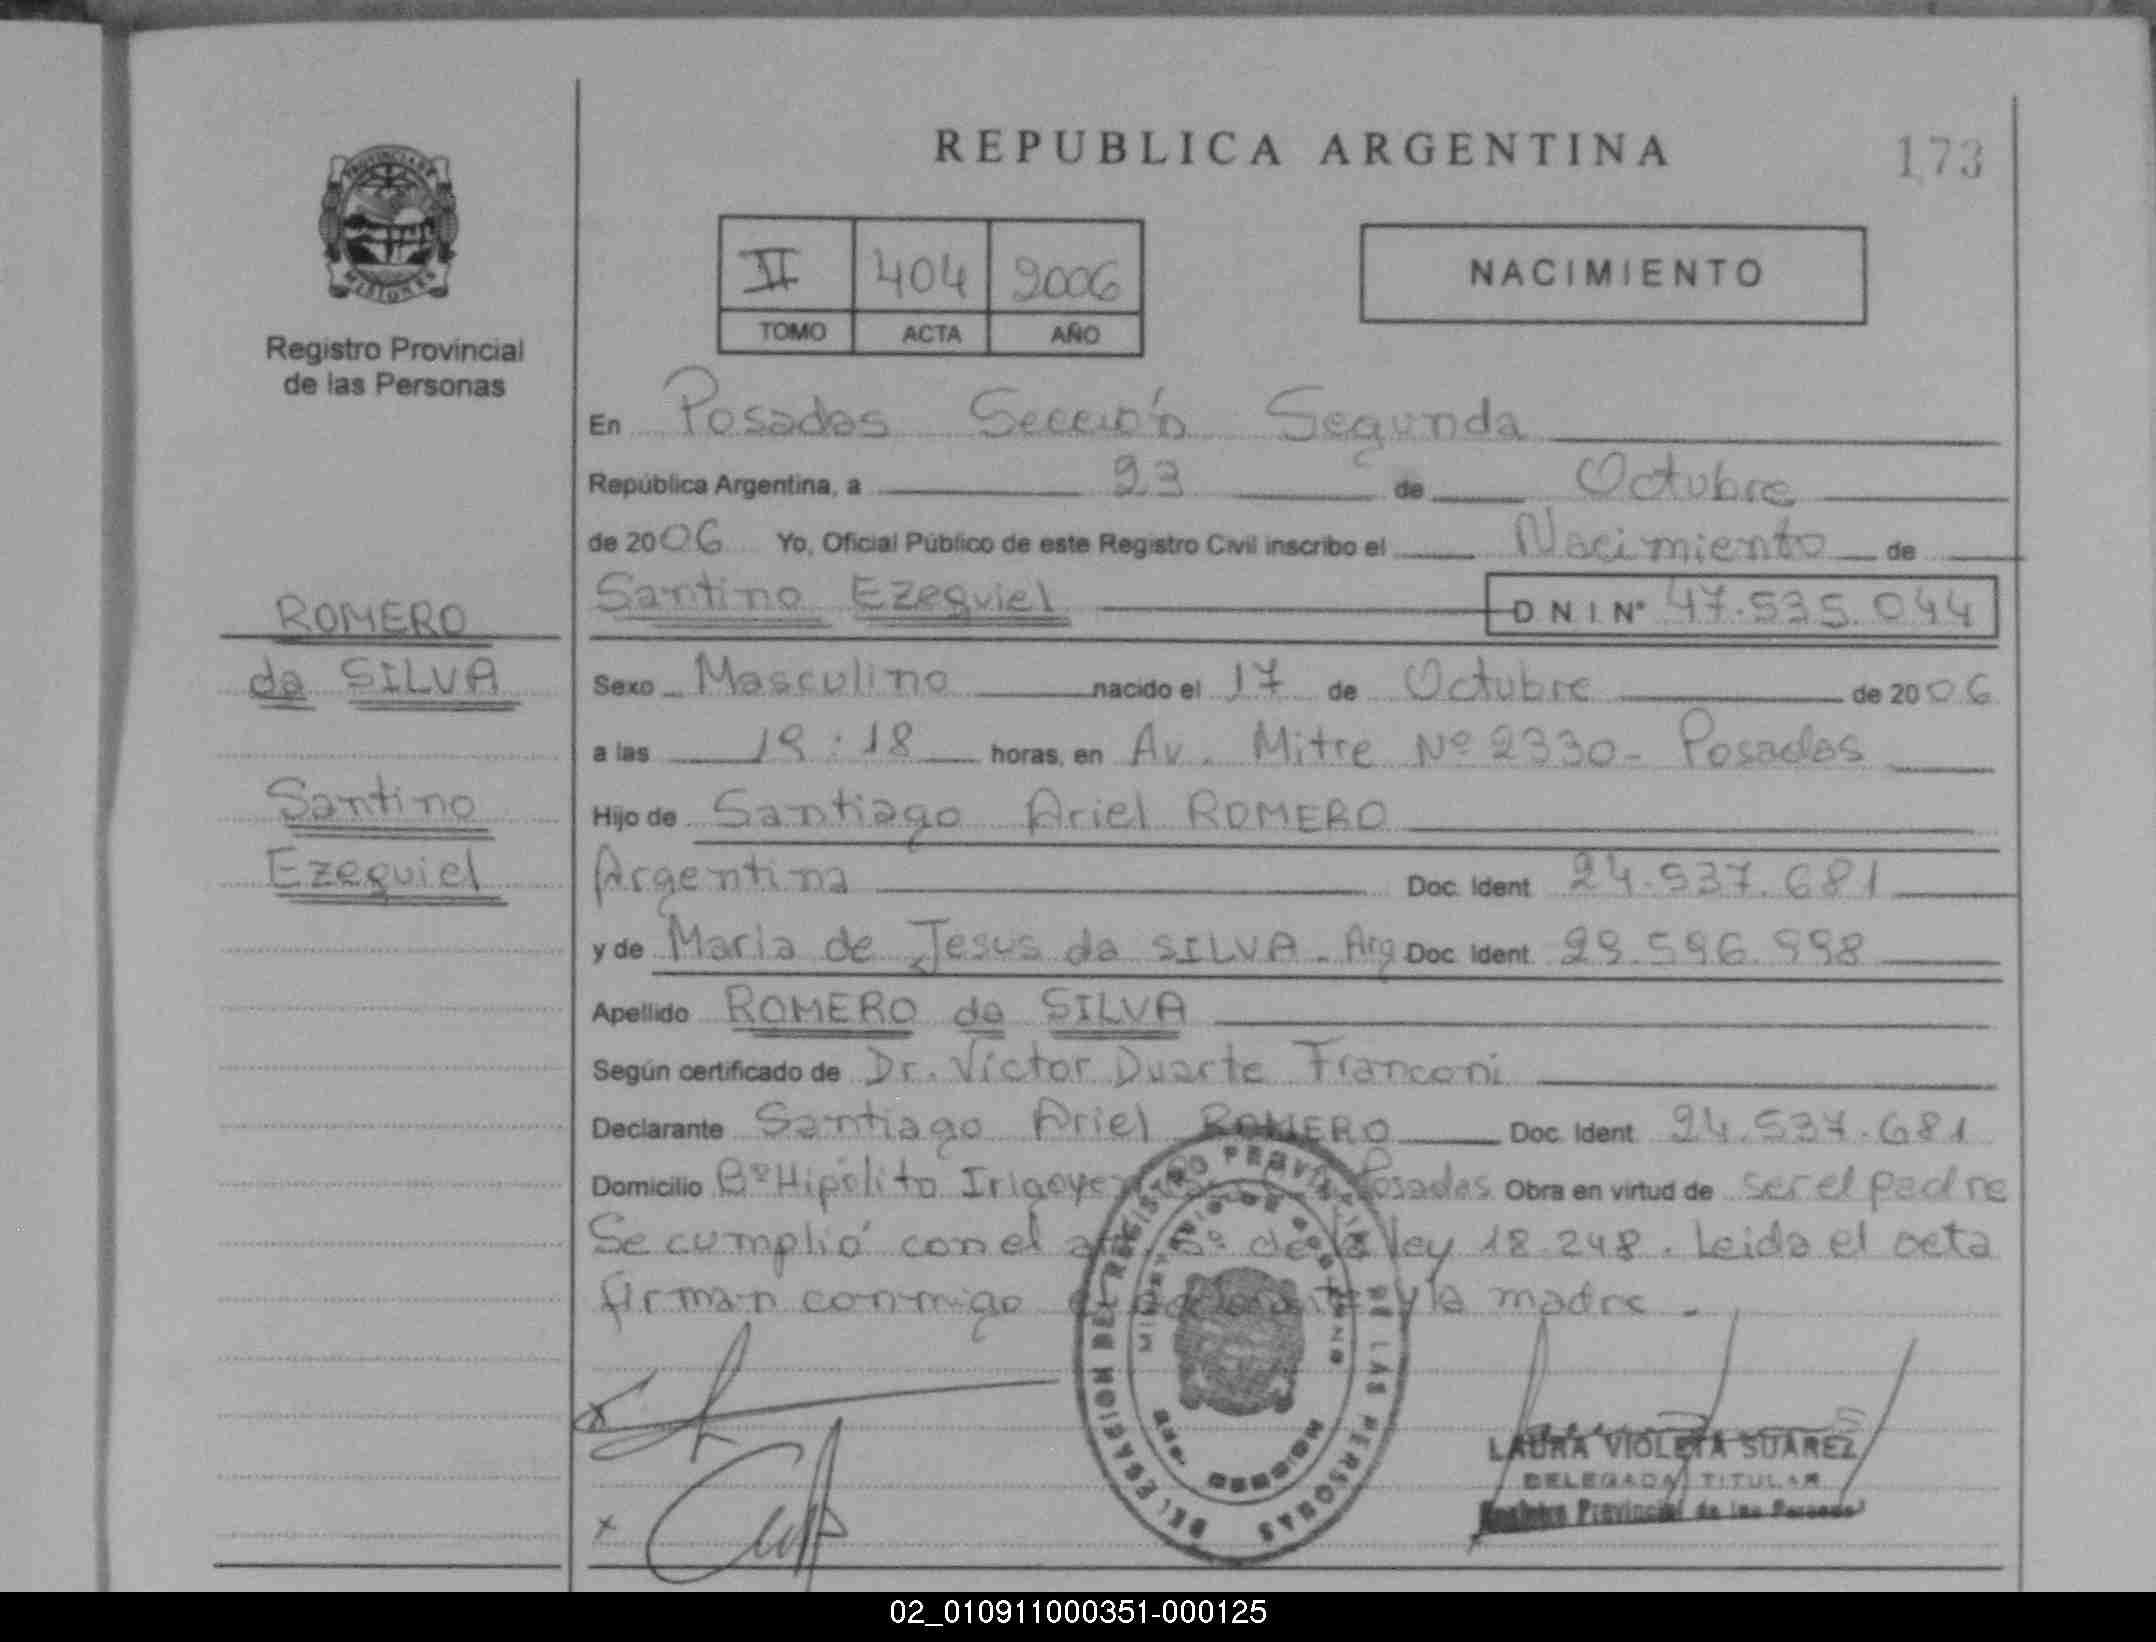 PROVINCIA DE
MISIONES
Registro Provincial
de las Personas
REPUBLICA ARGENTINA
173
II 404 2006
TOMO ACTA AÑO
NACIMIENTO
En Posadas Sección Segunda
República Argentina, a 23 de Octubre
de 2006 Yo, Oficial Público de este Registro Civil inscribo el Nacimiento de
Santino Ezequiel D N I Nº 47.535.044
ROMERO
da SILVA
Santino
Ezequiel
Sexo Masculino nacido el 17 de Octubre de 2006
a las 19:18 horas, en Av. Mitre Nº 2330- Posadas
Hijo de Santiago Ariel ROMERO
Argentina Doc. Ident. 24.537.681
y de Maria de Jesus da SILVA. Arg Doc. Ident. 29.596.998
Apellido ROMERO da SILVA
Según certificado de Dr. Víctor Duarte Franconi
Declarante Santiago Ariel ROMERO Doc. Ident. 24.537.681
Domicilio Bº Hipólito Irigoyen Posadas Obra en virtud de ser el padre
Se cumplió con el de la ley 18.248. Leida el acta
firman conmigo el declarante y la madre.
DELEGACION DEL REGISTRO PROVINCIAL DE LAS PERSONAS
MINISTERIO DE GOBIERNO
MISIONES
LAURA VIOLETA SUAREZ
DELEGADA TITULAR
Registro Provincial de las Personas
02_010911000351-000125